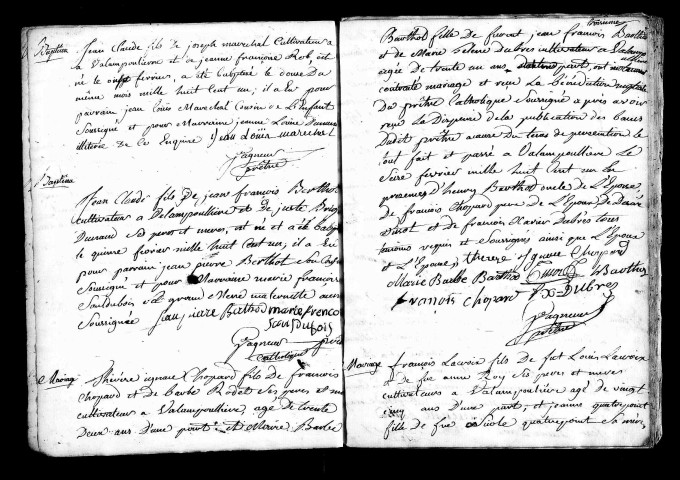 Baptême
Jean Claude fils de joseph marechal Cultivateur a
la Valampoulierre et a jeanne françoise Rob, est
né le onze fevrier, a été baptisé le douze du
même mois mille huit Cent un, il a eu pour
parrain jean Louis Marechal Cousin de L'Enfant
Soussigné et pour Marraine jeanne Louise
illiterée de ce Enquise jean Louis marechal
Vagneur
prêtre
Baptême
Jean Claude fils de jean françois Berthod
cultivateur a Valampoulierre et De juste
Durand Ses pere et mere, est né et a été baptisé
le quinze fevrier mille huit Cent un, il a Eu
pour parrain jean pierre Berthod son
Soussigné et pour Marraine marie françoise
Scaudubois sa grand Mere maternelle aussi
Soussignée jean piere Berthod marie franco
Scaudubois
Vagneur prêtre
Catholique
Mariage
Thiévre ignace Chopard fils de francois
Chopard et de barbe Rodet Ses peres et mere
cultivateurs a Valampoulliere, age de trente
Deux ans d'une part; et Marie Barbe
troisieme
Barthod fille de furent jean francois Barthod
et de Marie Helene Dubres cultivateur a Valempoulliere
agée de trente un ans part, ont
contracté mariage et reçu la Bénédiction nuptiale
Du prêtre Catholique Soussigné apres avoir
reçu La Dispense de la publication des bancs
Dudit prêtre acause Du tems de persecution le
tout fait et passé a Valampoulliere Le
Seize fevrier mille huit Cent un En la
presence d'henry Barthod oncle de L'Epouse,
de francois Chopard pere de L'Epoux de Denis
vinot et de francois Xavier Dubrès tous
temoins requis et Soussignés ainsi que L'Epoux
et L'Epouse Thievre ignace Chopard
Marie Barbe Barthod Barthod
francois Chopard fx Dubrès
Vagneur
prêtre
Mariage
François Lacroix fils de fut Louis Lacroix
et de fue anne Roy Ses peres et meres
cultivateurs a Valampoulierre age de vingt
cinq ans D'une part, et jeanne quatrepoint
fille de fue Nicole quatrepoint Sa mere,